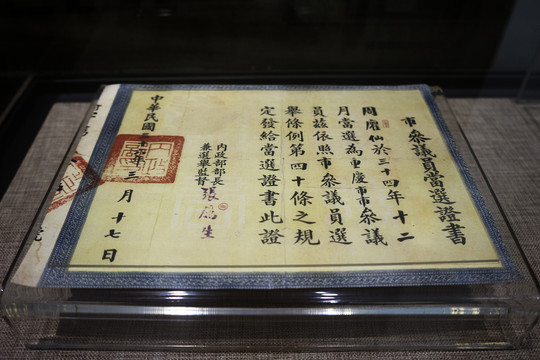 市參議員當選證書
周廣仙於三十四年十二
月當選為重慶市市參議
員茲依照市參議員選
舉條例第四十條之規
定發給當選證書此證
內政部部長
兼選舉監督
張厲生
中華民國三十五年三月十七日